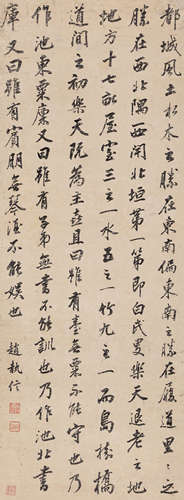 都城風土水木之勝在東南偏東南之勝在履道里々之
勝在西北隅西閈北垣第一第即白氏叟樂天退老之地
地方十七畝屋室三之一水五之一竹九之一而島樹橋
道間之初樂天既為主喜且曰雖有臺無粟不能守也乃
作池東粟廩又曰雖有子弟無書不能訓也乃作池北書
庫又曰雖有賓朋無琴酒不能娛也
趙執信